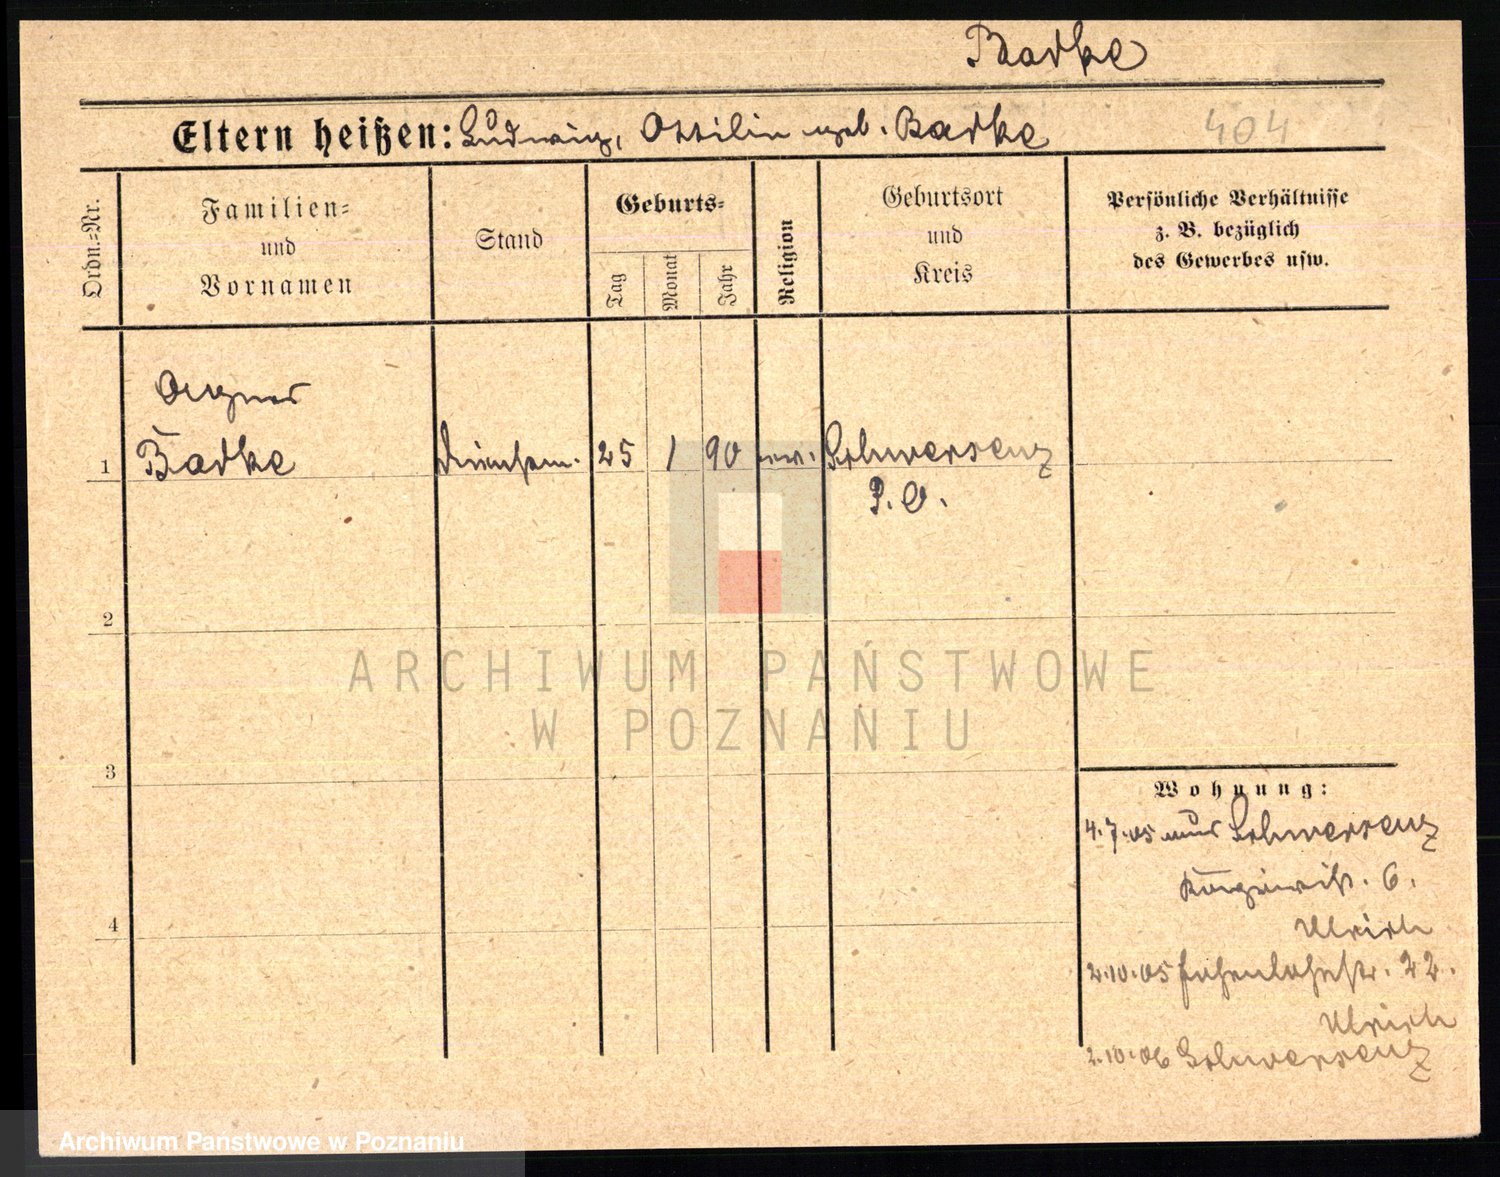 Badke
Eltern heißen: Ludwig, Ottilie geb. Badke
404
Ordn.-Nr.
Familien-
und
Vornamen
Stand
Geburts-
Tag
Monat
Jahr
Religion
Geburtsort
und
Kreis
Persönliche Verhältnisse
z. B. bezüglich
des Gewerbes usw.
Agnes
1 Badke 25 1 90 ev. Schwersenz
P. O.
2
ARCHIWUM PAŃSTWOWE
W POZNANIU
3
Wohnung:
4.7.05 aus Schwersenz
6.
4
Ulrich
2.10.05 Hohenlohestr. 22.
Ulrich
2.10.06 Schwersenz
Archiwum Państwowe w Poznaniu